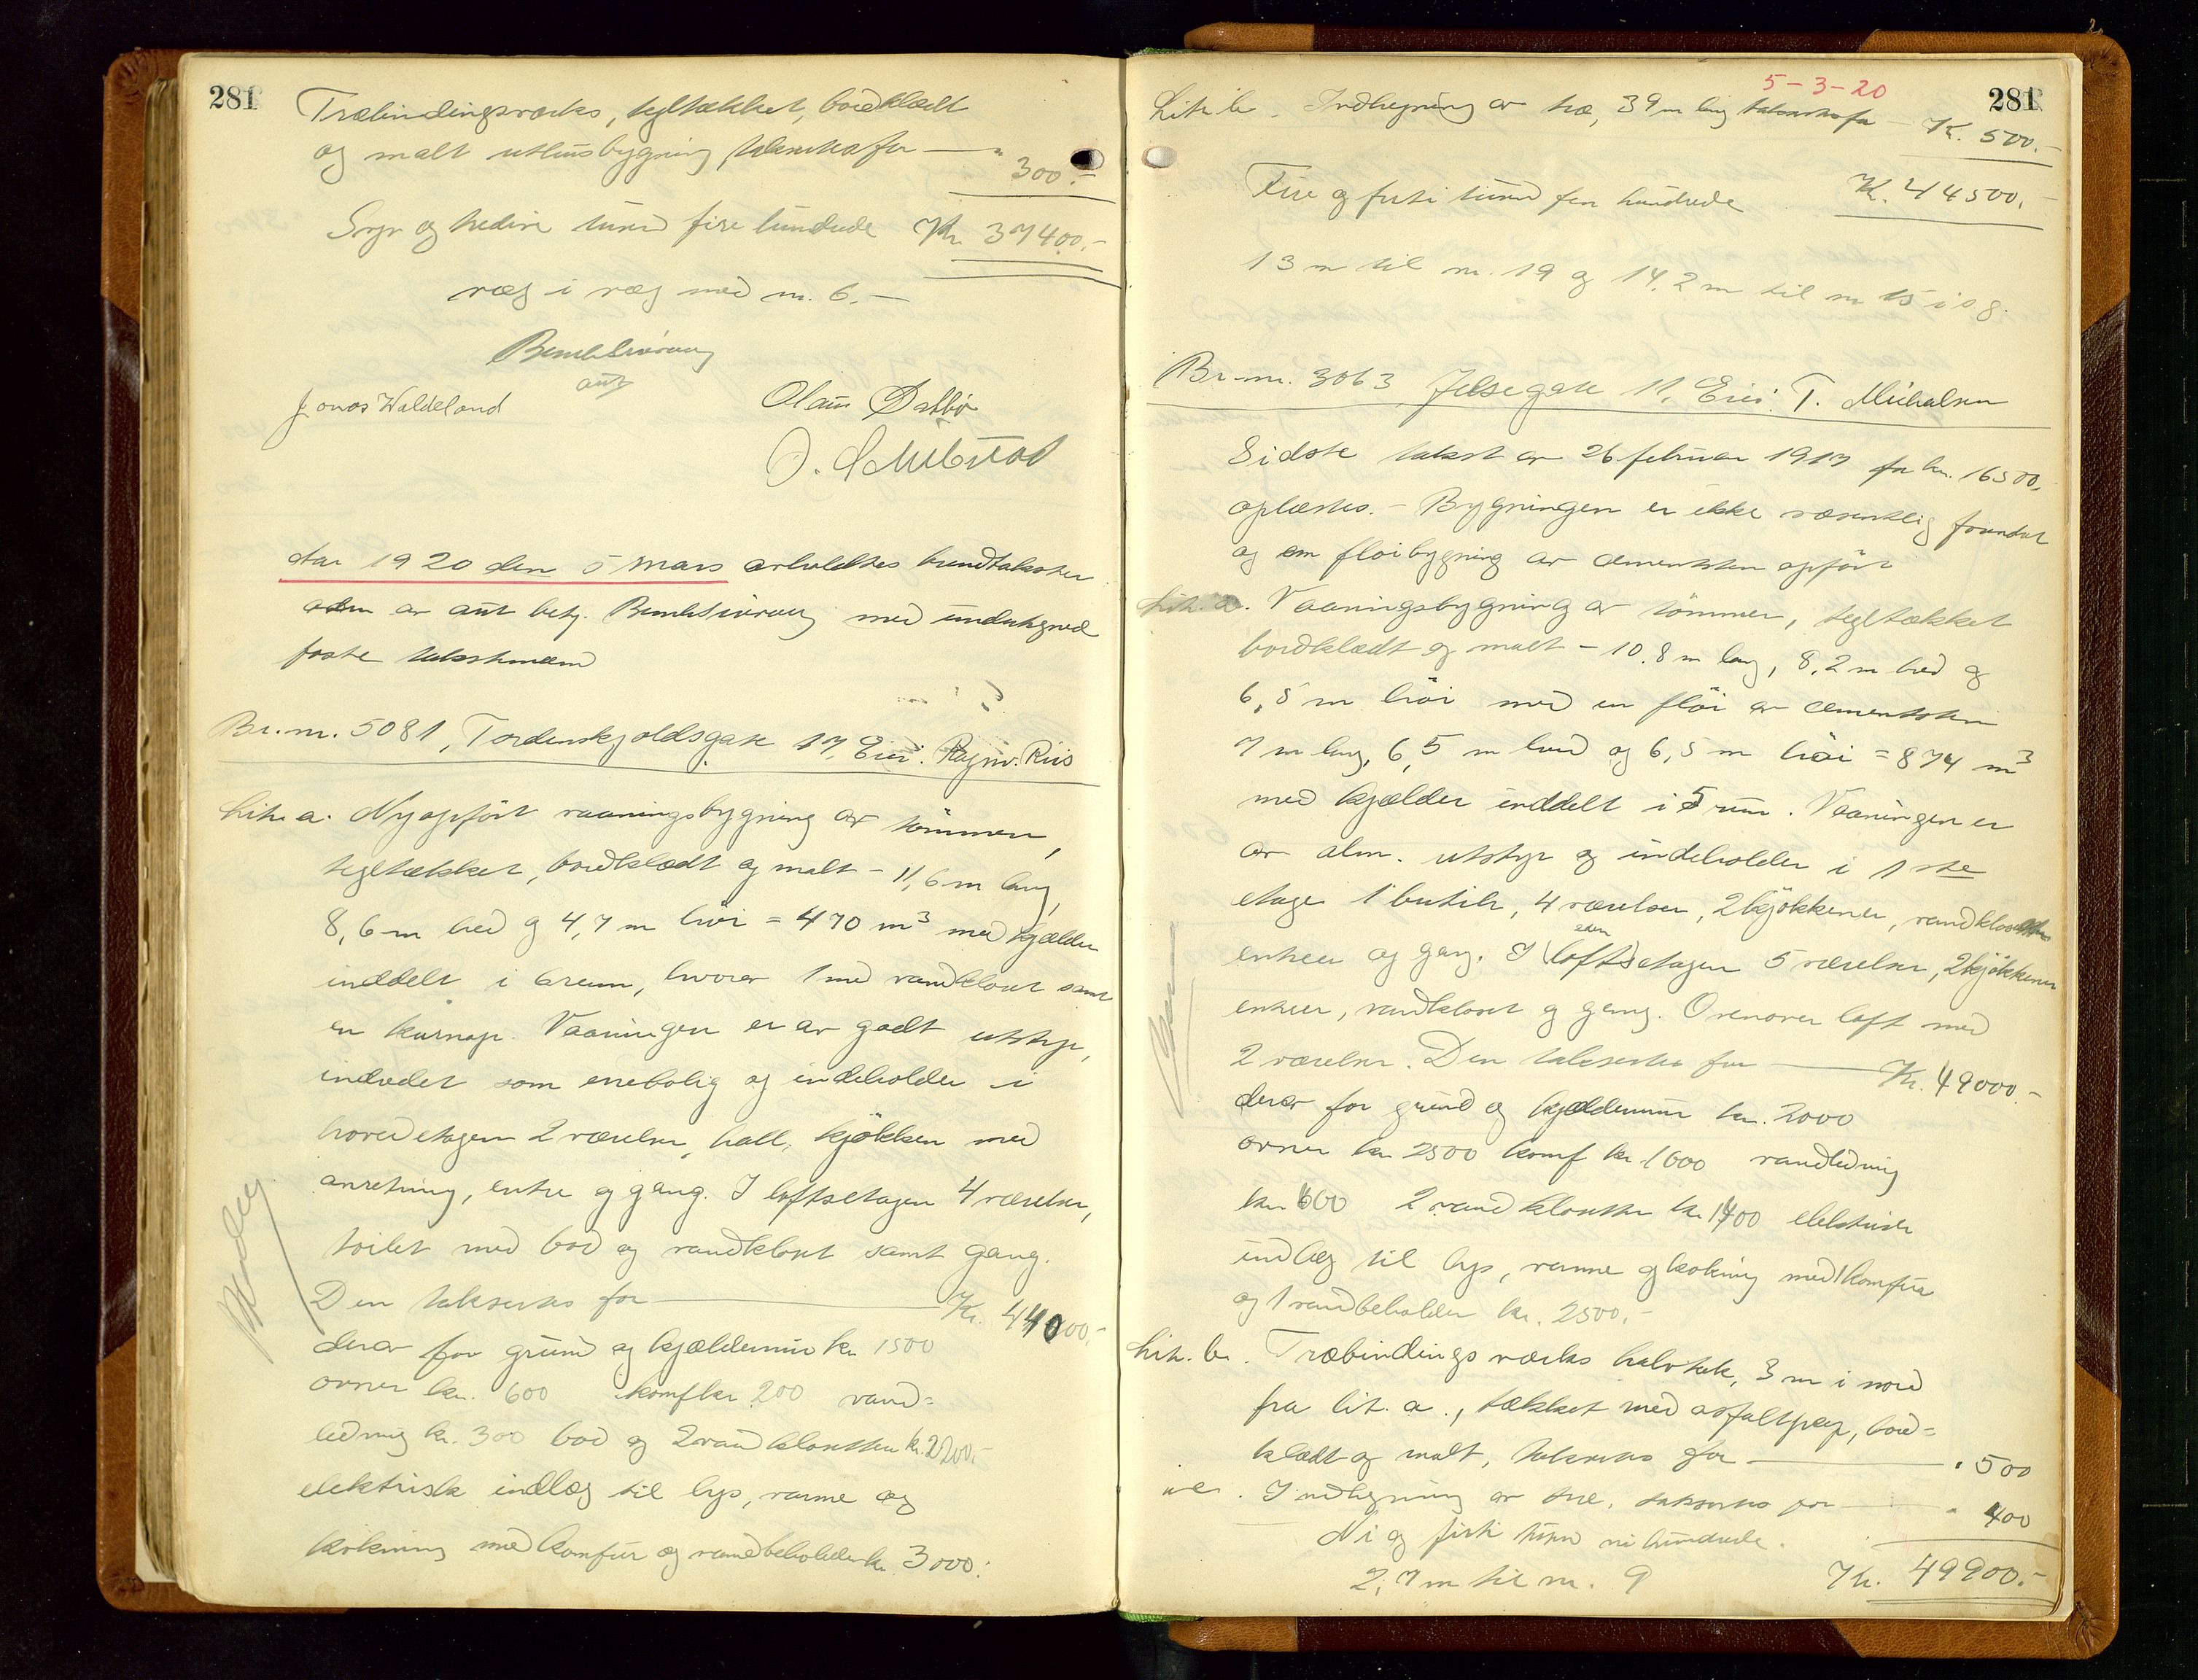 281
Træbindingsverks, tegltækket, bordklædt
og malt uthusbygning takseres for — " 300.-
Syv og tredive tusind fire hundrede Kr. 37400.-
væg i væg med nr. 6.-
Jonas Waldeland
aut
Olaus Dalbø
Aar 1920 den 5 mars avholdtes brandtakster
av aut betj. med undertegned
faste takstmænd
Br.nr. 5081, Tordenskjoldsgate 17, Eier: Ragnv. Riis
Litr. a. Nyopført vaaningsbygning av tømmer,
tegltækket, bordklædt og malt - 11,6 m lang,
8,6 m bred og 4,7 m høi = 470 m3 med kjælder
inddelt i 6 rum, hvorav 1 med vandklosett samt
en karnap. Vaaningen er av godt utstyr,
indredet som enebolig og indeholder i
hovedetagen 2 værelser, hall, kjøkken med
anretning, entre og gang. I loftsetagen 4 værelser,
toilet med bad og vandklosett samt gang.
Den takseres for — Kr. 44000.-
derav for grund og kjældermur kr. 1500
ovner kr. 600 komf kr. 200 vand=
ledning kr. 300 bad og 2 vandklosetter kr. 2200.-
elektrisk indlæg til lys, varme og
kokning med komfur og vandbeholder kr. 3000.
5-3-20
281
Litr. b. Indhegning av træ, 39 m lang takseres for — Kr. 500.-
Fire og firti tusind fem hundrede Kr. 44500.-
13 m til nr. 19 og 14,2 m til nr 15 i s g.
Br.nr. 3063 Jelsegate 11, Eier: T. Michalsen
Sidste takst av 26 februar 1917 for kr. 16500,
oplæstes. - Bygningen er ikke væsentlig forandret
og en fløibygning av cementsten opført
Litr. a. Vaaningsbygning av tømmer, tegltækket
bordklædt og malt - 10,8 m lang, 8,2 m bred og
6,5 m høi med en fløi av cementsten
7 m lang, 6,5 m bred og 6,5 m høi = 874 m3
med kjælder inddelt i 5 rum. Vaaningen er
av alm. utstyr og indeholder i 1ste
etage 1 butik, 4 værelser, 2 kjøkkener, vandklosetter
entreer og gang. I (lofts)etagen 5 værelser, 2 kjøkkener
entreer, vandklosett og gang. Ovenover loft med
2 værelser. Den takseres for — Kr. 49000.-
derav for grund og kjældermur kr. 2000
ovner kr. 2500 komf kr. 1600 vandledning
kr. 600 2 vandklosetter kr. 1400 elektrisk
indlæg til lys, varme og kokning med 1 komfur
og 1 vandbeholder kr. 2500.-
Litr. b. Træbindingsverks halvtak, 3 m i nord
fra lit. a., tækket med asfaltpap, bord=
klædt og malt, takseres for — " 500
" c. Indhegning av træ, takseres for — " 400
Ni og firti tusind ni hundrede.
2,7 m til nr. 9 Kr. 49900.-